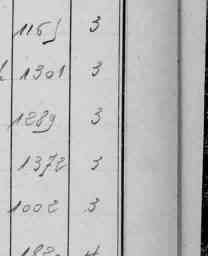 1165 3
1301 3
1289 3
1372 3
1002 3